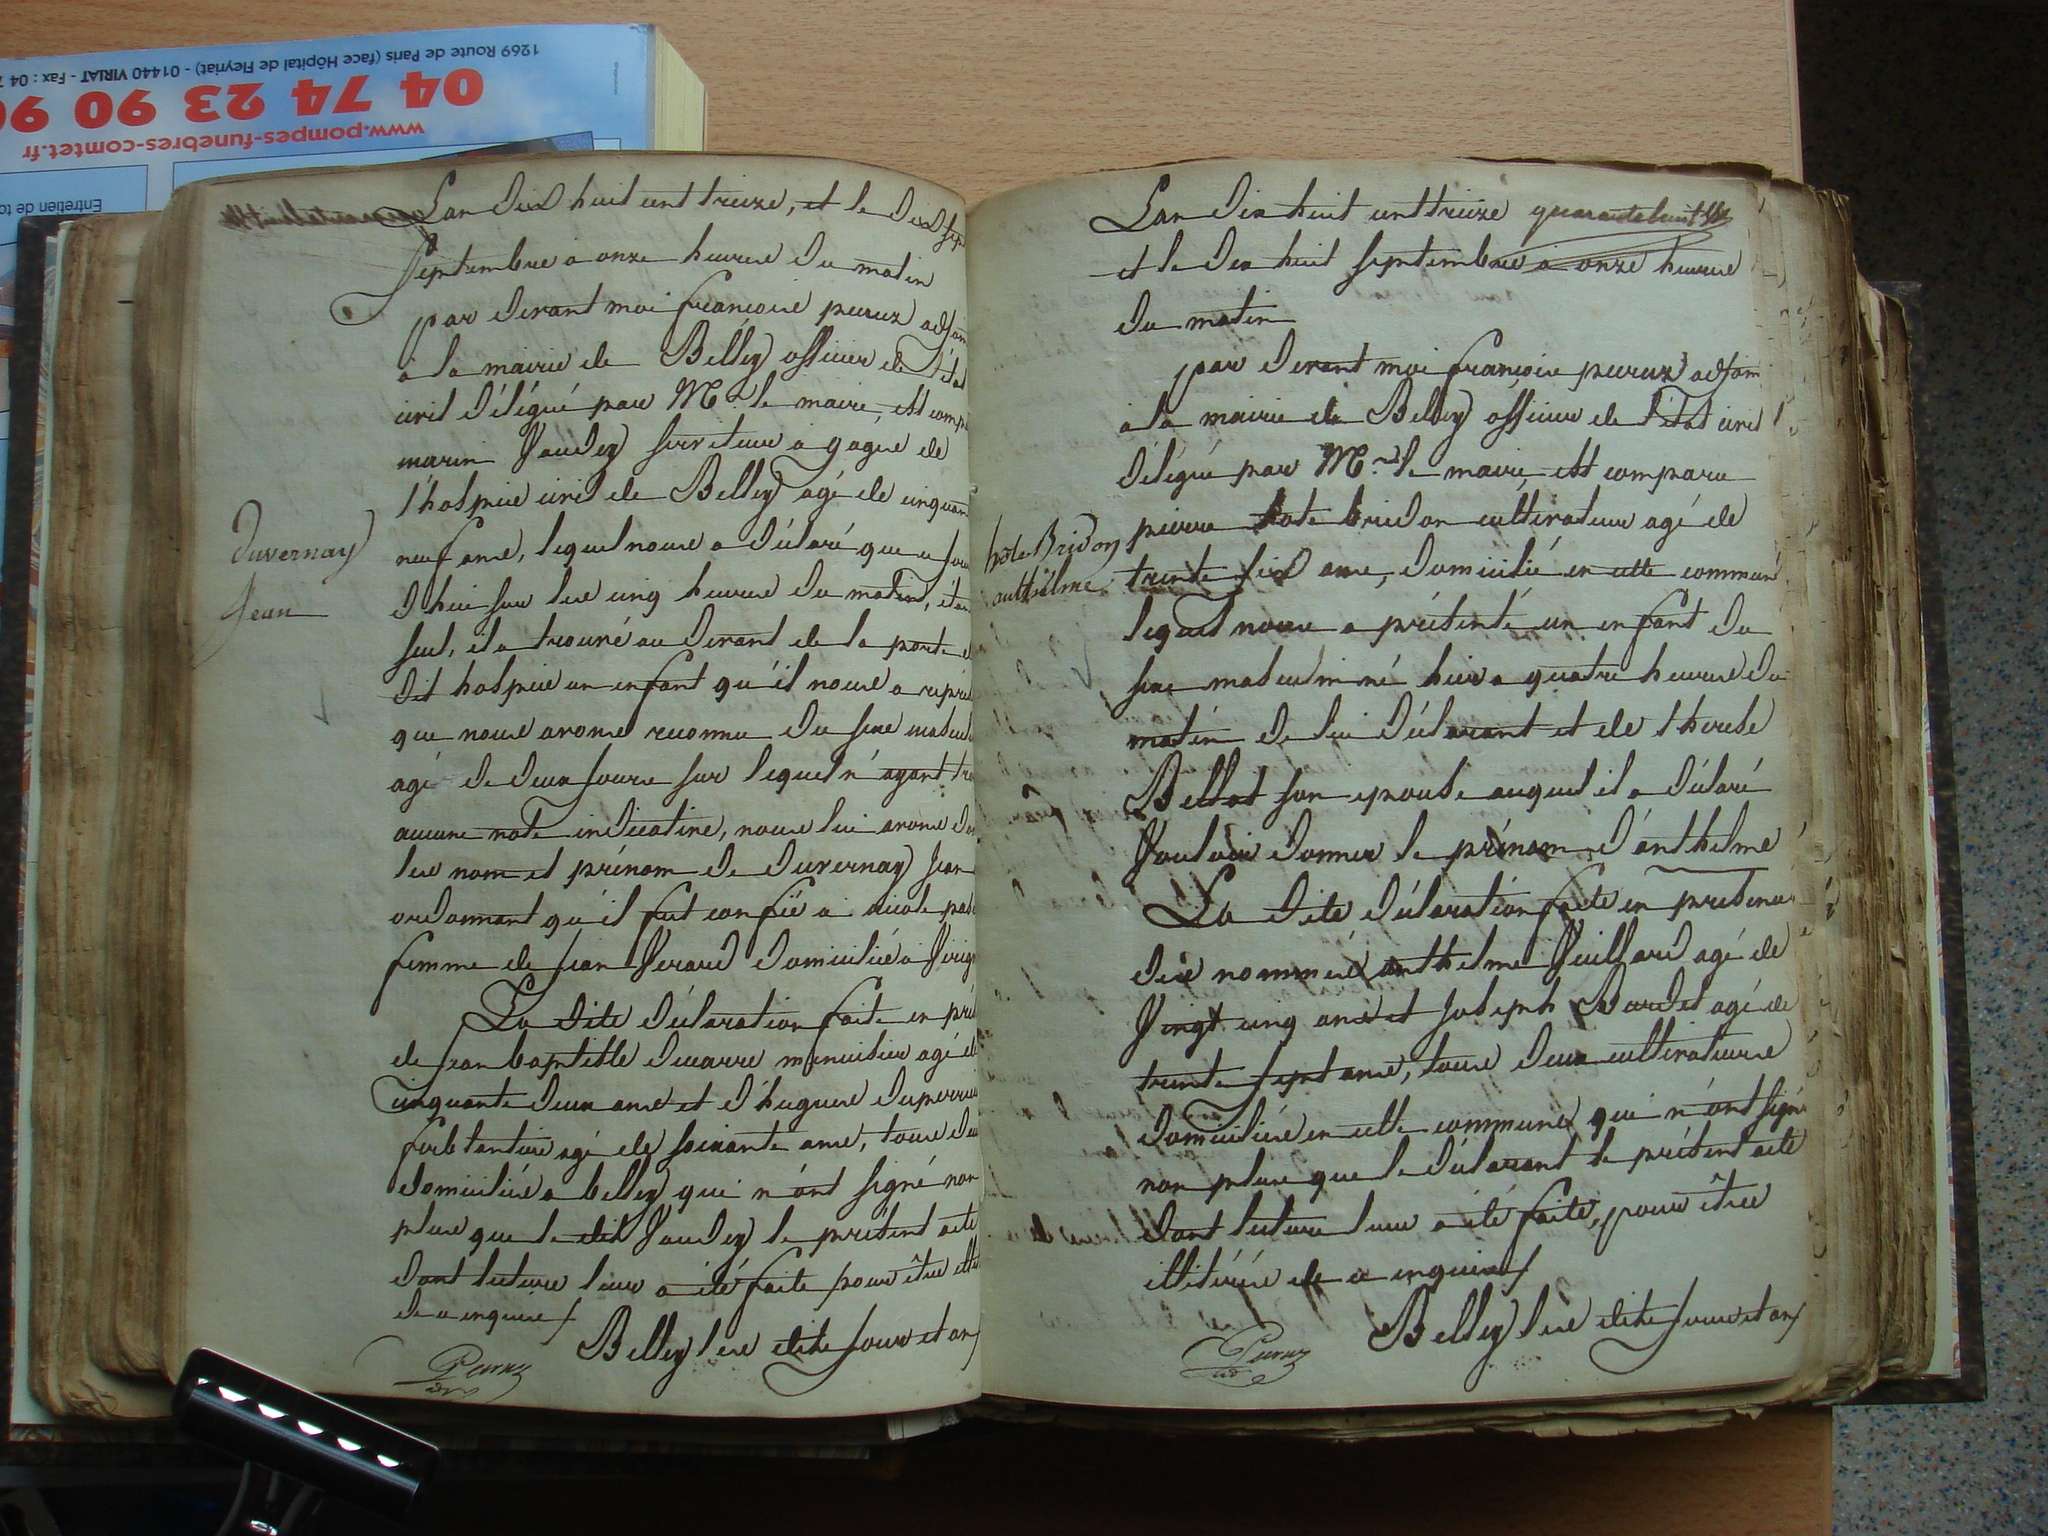 1269 Route de Paris (face Hôpital de Fleyriat) - 01440 VIRIAT - Fax : 04 7
04 74 23 90 90
www.pompes-funebres-comtet.fr
Entretien de to
L'an dix huit cent treize, et le dix sept
septembre a onze heures du matin
par devant moi françois peruz adjoin
a la mairie de Belley officier de l'état
civil délégué par Mr. le maire, est comp
marin Vaudey serviteur a gages de
l'hospice civil de Belley agé de cinquan
neuf ans, lequel nous a déclaré que ce jour
d'hui sur les cinq heures du matin, étan
seul, il a trouvé au devant de la porte d
dit hospice un enfant qu'il nous a représ
que nous avons reconnu du sexe mascul
agé de deux jours sur lequel n'ayant tro
aucune note indicative, nous lui avons do
les nom et prénom de Duvernay Jean
ordonnant qu'il fut confié a nicole
femme de Jean Verard domiciliée a Virign
La dite déclaration faite en prés
de Jean baptiste Ducarre menuisier agé de
cinquante deux ans et d'hugues Duperrui
ferblantier agé de soixante ans, tous deux
domiciliés a belley qui n'ont signé non
plus que le dit Vaudey le présent acte
dont lecture leur a été faite pour être illit
de ce enquis /
Belley les dits jour et an /
Peruz
adj
Duvernay
Jean
quarante huit
L'an dix huit cent treize
et le dix huit septembre a onze heures
du matin
par devant moi françois peruz adjoin
a la mairie de Belley officier de l'état civil
délégué par Mr. le maire, est comparu
pierre hote bridon cultivateur agé de
trente six ans, domicilié en cette commune
lequel nous a présenté un enfant du
sexe masculin né hier a quatre heures du
matin de lui déclarant et de
Bellod son epouse auquel il a déclaré
Vouloir donner le prénom d'anthelme
La dite déclaration faite en présence
des nommés anthelme Vuillard agé de
Vingt cinq ans et Joseph Burdet agé de
trente sept ans, tous deux cultivateurs
domiciliés en cette commune qui n'ont signé
non plus que le déclarant le présent acte
dont lecture leur a été faite, pour être
illitérés de ce enquis /
Belley les dits jour et an /
Peruz
adj
hote Bridon
anthelme